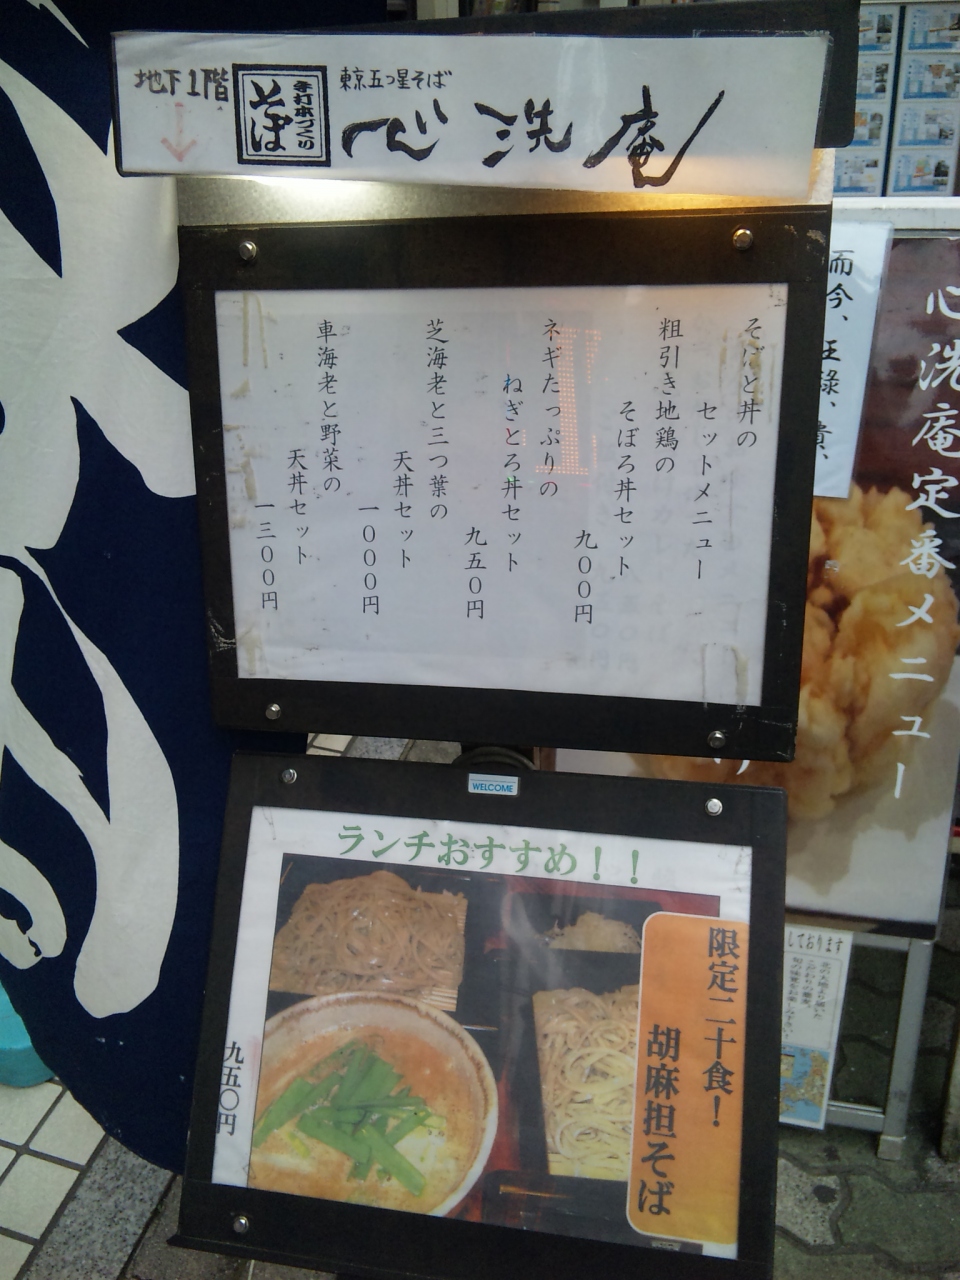 地下1階
手打本づくり
そば
東京五つ星そば
心洗庵
そばと丼の
セットメニュー
粗引き地鶏の
そぼろ丼セット
九〇〇円
ネギたっぷりの
ねぎとろ丼セット
九五〇円
芝海老と三つ葉の
天丼セット
一〇〇〇円
車海老と野菜の
天丼セット
一三〇〇円
WELCOME
ランチおすすめ！！
限定二十食！
胡麻担そば
九五〇円
而今、
心洗庵定番メニュー
しております